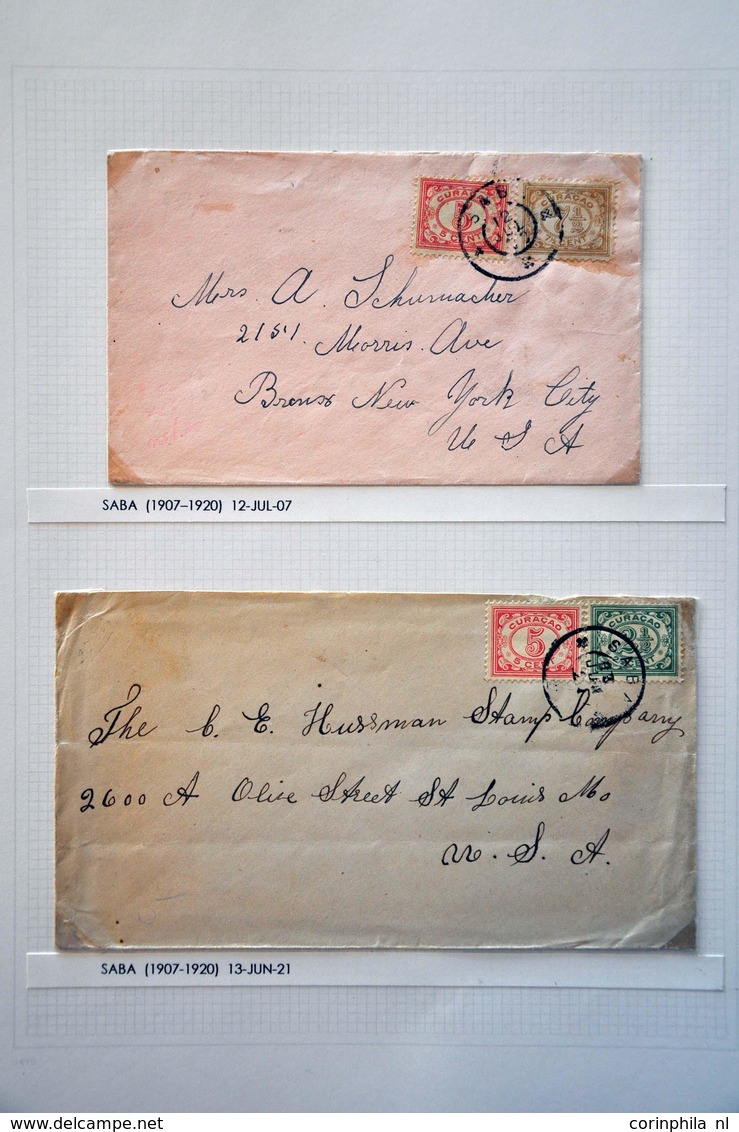 CURAÇAO CURAÇAO
5 7½
5 CENT 7½ CENT
SAB
12
Mrs. A. Schumacher
2151 Morris Ave
Bronx New York City
U S A
SABA (1907–1920) 12-JUL-07
CURAÇAO CURAÇAO
5 2½
5 CENT CENT
SABA
The C. E. Hussman Stamp Company
2600 A Olive Street St Louis Mo
U. S. A.
SABA (1907-1920) 13-JUN-21
delcampe.net
corinphila nl